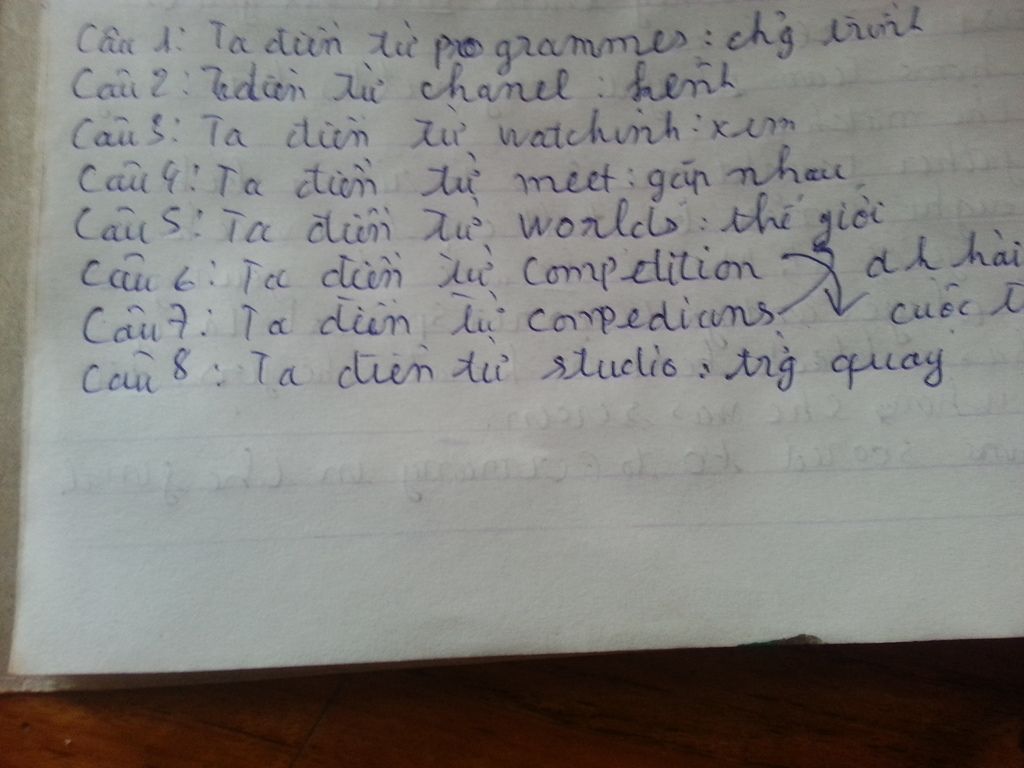 Câu 1: Ta điền từ programmes: chg trình
Câu 2: Ta điền từ chanel: kênh
Câu 3: Ta điền từ watchinh: xem
Câu 4: Ta điền từ meet: gặp nhau
Câu 5: Ta điền từ worlds: thế giới
Câu 6: Ta điền từ Compedition dh hài
Câu 7: Ta điền từ compedians cuộc
Câu 8: Ta điền từ studio: trg quay